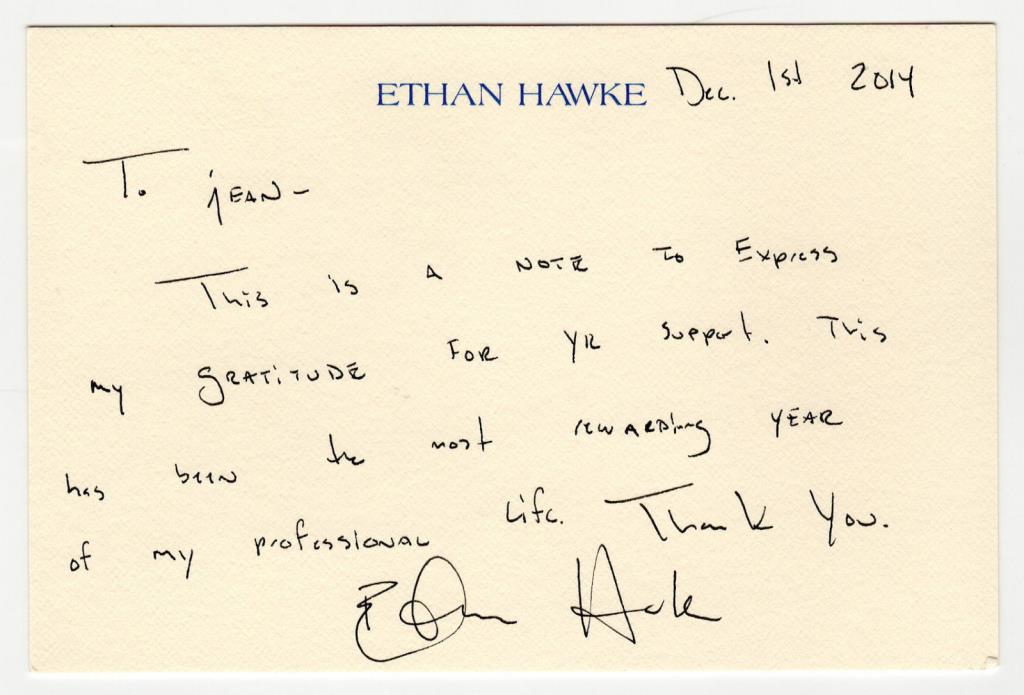 ETHAN HAWKE Dec. 1st 2014
To jEAN-
This is A NOTE To Express
my gRATiTUDE FOR YR support. This
has been the most rewARDing YEAR
of my professional Life. Thank You.
Ethan Hawke